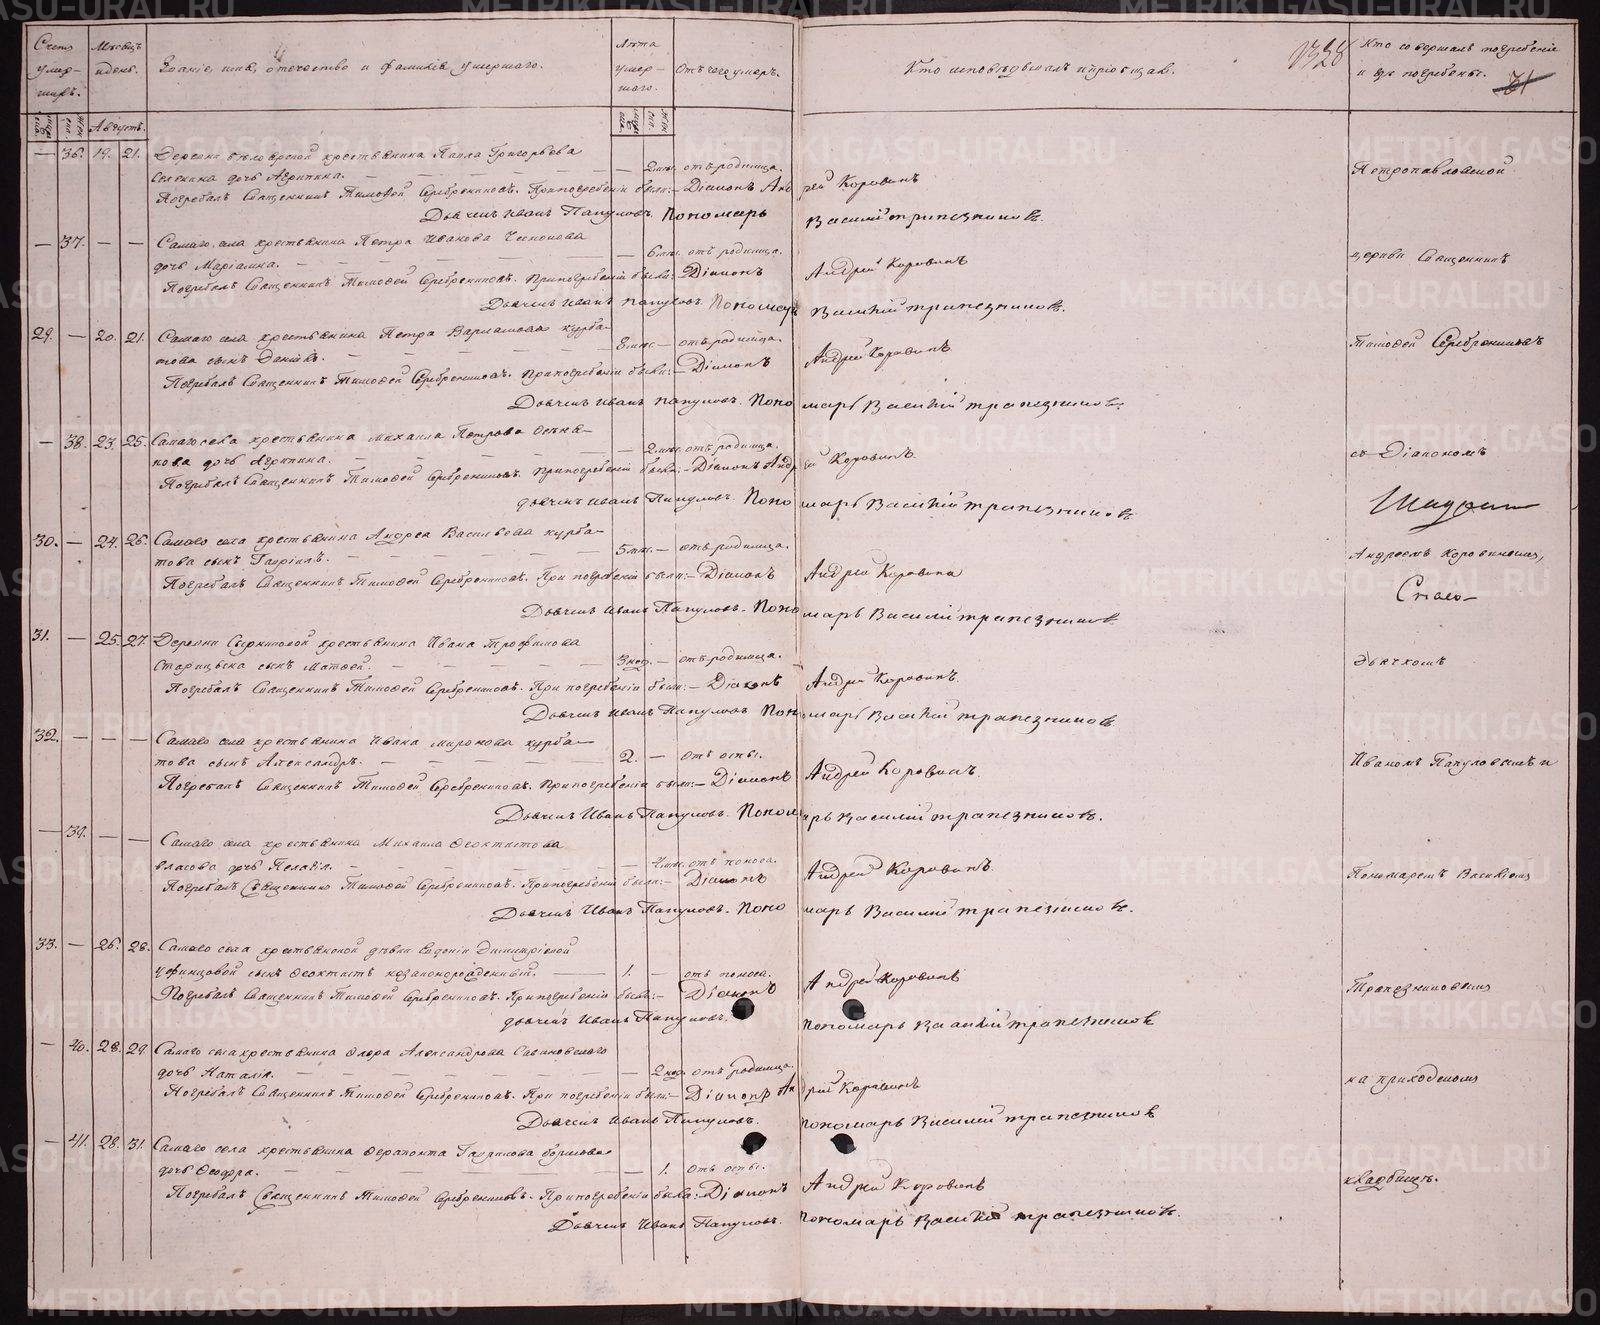 Счетъ умер-шихъ.
Мѣсяцъ и день.
Званіе, имя, отечество и фамилія умершаго.
Лѣта умер-шаго.
Отъ чего умеръ.
Кто исповѣдывалъ и пріобщалъ.
1328
Кто совершалъ погребеніе
и гдѣ погребены.
71
Августъ.
— 36. 19. 21. Деревни крестьянина Павла Григорьева
дочь Агрипина. — 2 мѣс. отъ родимца.
Погребалъ Священникъ Тимофей Серебренниковъ. При погребеніи были:— Діаконъ Андрей Коровинъ
Дьячекъ Иванъ Папуловъ. Пономарь Василій Трапезниковъ.
— 37. — — Самаго села крестьянина Петра Иванова
дочь Маріамна. — 6 мѣс. отъ родимца.
Погребалъ Священникъ Тимофей Серебренниковъ. При погребеніи были: Діаконъ Андрей Коровинъ
Дьячекъ Иванъ Папуловъ. Пономарь Василій Трапезниковъ.
29. — 20. 21. Самаго села крестьянина Петра Варламова Курба-
това сынъ Даніилъ. — 8 мѣс. — отъ родимца.
Погребалъ Священникъ Тимофей Серебренниковъ. При погребеніи были:— Діаконъ Андрей Коровинъ
Дьячекъ Иванъ Папуловъ. Пономарь Василій Трапезниковъ.
— 38. 23. 25. Самаго села крестьянина Михаила Петрова
дочь Агрипина. — 2 мѣс. отъ родимца.
Погребалъ Священникъ Тимофей Серебренниковъ. При погребеніи были:— Діаконъ Андрей Коровинъ
Дьячекъ Иванъ Папуловъ. Пономарь Василій Трапезниковъ
30. — 24. 26. Самаго села крестьянина Андрея Васильева Курба-
това сынъ Гавріилъ. — 5 мѣс. — отъ родимца.
Погребалъ Священникъ Тимофей Серебренниковъ. При погребеніи были:— Діаконъ Андрей Коровинъ
Дьячекъ Иванъ Папуловъ. Пономарь Василій Трапезниковъ
31. — 25. 27. Деревни крестьянина Ивана Трофимова
сынъ Матфей. — 3 нед. — отъ родимца.
Погребалъ Священникъ Тимофей Серебренниковъ. При погребеніи были:— Діаконъ Андрей Коровинъ
Дьячекъ Иванъ Папуловъ Пономарь Василій Трапезниковъ
32. — — — Самаго села крестьянина Ивана Миронова Курба-
това сынъ Александръ. — 2. — отъ оспы.
Погребалъ Священникъ Тимофей Серебренниковъ. При погребеніи были:— Діаконъ Андрей Коровинъ.
Дьячекъ Иванъ Папуловъ. Пономарь Василій Трапезниковъ.
— 39. — — Самаго села крестьянина Михаила Феоктистова
Власова дочь Пелагія. — отъ поноса.
Погребалъ Священникъ Тимофей Серебренниковъ. При погребеніи были:— Діаконъ Андрей Коровинъ.
Дьячекъ Иванъ Папуловъ. Пономарь Василій Трапезниковъ.
33. — 26. 28. Самаго села крестьянской дѣвки Евдокіи Димитріевой
сынъ Феоктистъ незаконорожденный. — 1. — отъ поноса.
Погребалъ Священникъ Тимофей Серебренниковъ. При погребеніи были:— Діаконъ Андрей Коровинъ
Дьячекъ Иванъ Папуловъ. Пономарь Василій Трапезниковъ
— 40. 28. 29. Самаго села крестьянина Флора Александрова
дочь Наталія. — 2 нед. отъ родимца.
Погребалъ Священникъ Тимофей Серебренниковъ. При погребеніи были:— Діаконъ Андрей Коровинъ
Дьячекъ Иванъ Папуловъ. Пономарь Василій Трапезниковъ
— 41. 28. 31. Самаго села крестьянина Ферапонта Гаврилова
дочь Феодора. — 1. отъ оспы.
Погребалъ Священникъ Тимофей Серебренниковъ. При погребеніи были: Діаконъ Андрей Коровинъ
Дьячекъ Иванъ Папуловъ. Пономарь Василій Трапезниковъ.
Петропавловской
церкви Священникъ
Тимофей Серебренниковъ
съ Діакономъ
Андреемъ Коровинымъ,
Дьячкомъ
Иваномъ Папуловымъ и
Пономаремъ Василіемъ
Трапезниковымъ
на приходскомъ
кладбищѣ.
METRIKI.GASO-URAL.RU